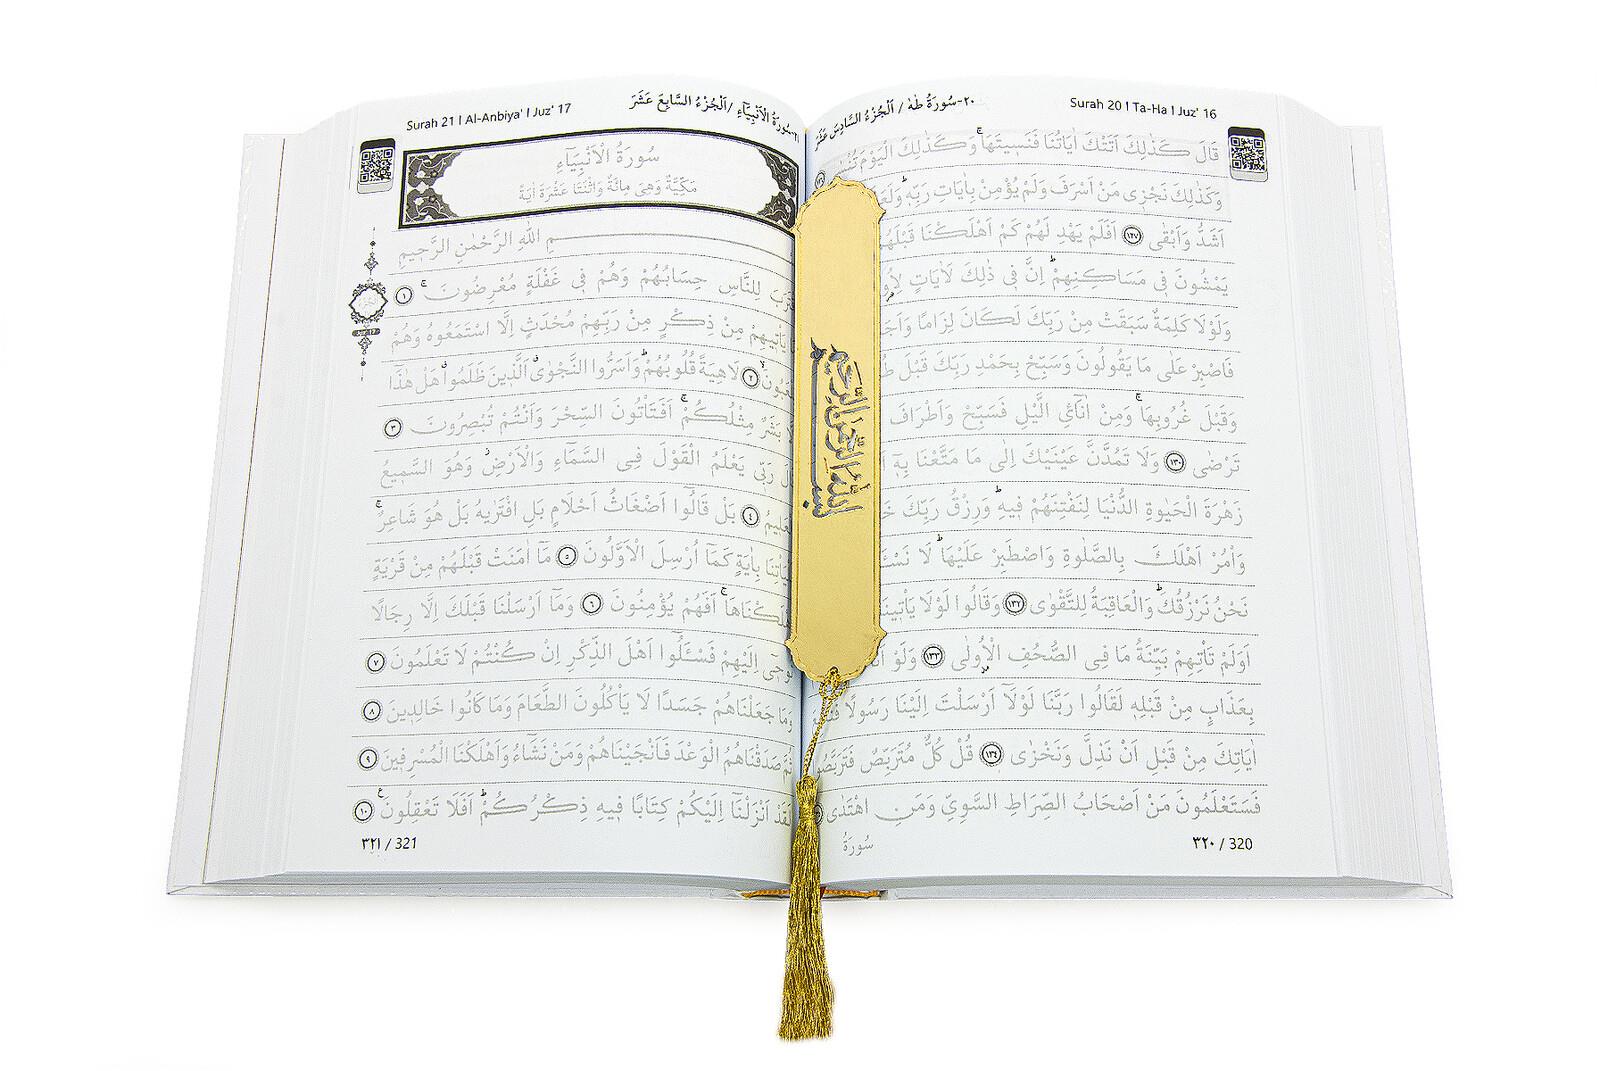 ٢٠-سُورَةُ طٰهٰ / اَلْجُزْءُ السَّادِسَ عَشَرَ
Surah 20 I Ta-Ha I Juz' 16
قَالَ كَذٰلِكَ اَتَتْكَ اٰيَاتُنَا فَنَسِيتَهَاۚ وَكَذٰلِكَ الْيَوْمَ تُنْسٰى
وَكَذٰلِكَ نَجْزِى مَنْ اَسْرَفَ وَلَمْ يُؤْمِنْ بِاٰيَاتِ رَبِّه۪ۜ
اَشَدُّ وَاَبْقٰى ١٢٧ اَفَلَمْ يَهْدِ لَهُمْ كَمْ اَهْلَكْنَا قَبْلَهُمْ
يَمْشُونَ فِى مَسَاكِنِهِمْۜ اِنَّ فِى ذٰلِكَ لَاٰيَاتٍ
وَلَوْلَا كَلِمَةٌ سَبَقَتْ مِنْ رَبِّكَ لَكَانَ لِزَامًا
فَاصْبِرْ عَلٰى مَا يَقُولُونَ وَسَبِّحْ بِحَمْدِ رَبِّكَ قَبْلَ
وَقَبْلَ غُرُوبِهَاۚ وَمِنْ اٰنَآئِ الَّيْلِ فَسَبِّحْ وَاَطْرَافَ
تَرْضٰى ١٣٠ وَلَا تَمُدَّنَّ عَيْنَيْكَ اِلٰى مَا مَتَّعْنَا بِه۪ٓ
زَهْرَةَ الْحَيٰوةِ الدُّنْيَا لِنَفْتِنَهُمْ فِيهِۜ وَرِزْقُ رَبِّكَ
وَاْمُرْ اَهْلَكَ بِالصَّلٰوةِ وَاصْطَبِرْ عَلَيْهَاۜ لَا
نَحْنُ نَرْزُقُكَۜ وَالْعَاقِبَةُ لِلتَّقْوٰى ١٣٢ وَقَالُوا لَوْلَا يَاْتِينَا
اَوَلَمْ تَاْتِهِمْ بَيِّنَةُ مَا فِى الصُّحُفِ الْاُولٰى ١٣٣ وَلَوْ
بِعَذَابٍ مِنْ قَبْلِه۪ لَقَالُوا رَبَّنَا لَوْلَٓا اَرْسَلْتَ اِلَيْنَا رَسُولًا
اٰيَاتِكَ مِنْ قَبْلِ اَنْ نَذِلَّ وَنَخْزٰى ١٣٤ قُلْ كُلٌّ مُتَرَبِّصٌ فَتَرَبَّصُوا
فَسَتَعْلَمُونَ مَنْ اَصْحَابُ الصِّرَاطِ السَّوِىِّ وَمَنِ اهْتَدٰى
سُورَةُ
٣٢٠ / 320
بسم الله الرحمن الرحيم
Surah 21 I Al-Anbiya' I Juz' 17
٢١-سُورَةُ الْاَنْبِيَٓاءِ / اَلْجُزْءُ السَّابِعَ عَشَرَ
سُورَةُ الْاَنْبِيَٓاءِ
مَكِّيَّةٌ وَهِىَ مِائَةٌ وَاثْنَتَا عَشْرَةَ اٰيَةً
بِسْمِ اللّٰهِ الرَّحْمٰنِ الرَّحِيمِ
لِلنَّاسِ حِسَابُهُمْ وَهُمْ فِى غَفْلَةٍ مُعْرِضُونَۚ ١
يَاْتِيهِمْ مِنْ ذِكْرٍ مِنْ رَبِّهِمْ مُحْدَثٍ اِلَّا اسْتَمَعُوهُ وَهُمْ
٢ لَاهِيَةً قُلُوبُهُمْۜ وَاَسَرُّوا النَّجْوٰىۗ اَلَّذِينَ ظَلَمُواۗ هَلْ هٰذَٓا
بَشَرٌ مِثْلُكُمْۚ اَفَتَاْتُونَ السِّحْرَ وَاَنْتُمْ تُبْصِرُونَ ٣
رَبِّى يَعْلَمُ الْقَوْلَ فِى السَّمَٓاءِ وَالْاَرْضِۘ وَهُوَ السَّمِيعُ
٤ بَلْ قَالُٓوا اَضْغَاثُ اَحْلَامٍ بَلِ افْتَرٰيهُ بَلْ هُوَ شَاعِرٌۚ
بِاٰيَةٍ كَمَٓا اُرْسِلَ الْاَوَّلُونَ ٥ مَٓا اٰمَنَتْ قَبْلَهُمْ مِنْ قَرْيَةٍ
اَهْلَكْنَاهَاۚ اَفَهُمْ يُؤْمِنُونَ ٦ وَمَٓا اَرْسَلْنَا قَبْلَكَ اِلَّا رِجَالًا
نُوحِٓى اِلَيْهِمْ فَسْـَٔلُٓوا اَهْلَ الذِّكْرِ اِنْ كُنْتُمْ لَا تَعْلَمُونَ ٧
وَمَا جَعَلْنَاهُمْ جَسَدًا لَا يَاْكُلُونَ الطَّعَامَ وَمَا كَانُوا خَالِدِينَ ٨
ثُمَّ صَدَقْنَاهُمُ الْوَعْدَ فَاَنْجَيْنَاهُمْ وَمَنْ نَشَٓاءُ وَاَهْلَكْنَا الْمُسْرِفِينَ ٩
لَقَدْ اَنْزَلْنَٓا اِلَيْكُمْ كِتَابًا فِيهِ ذِكْرُكُمْۜ اَفَلَا تَعْقِلُونَ ١٠
٣٢١ / 321